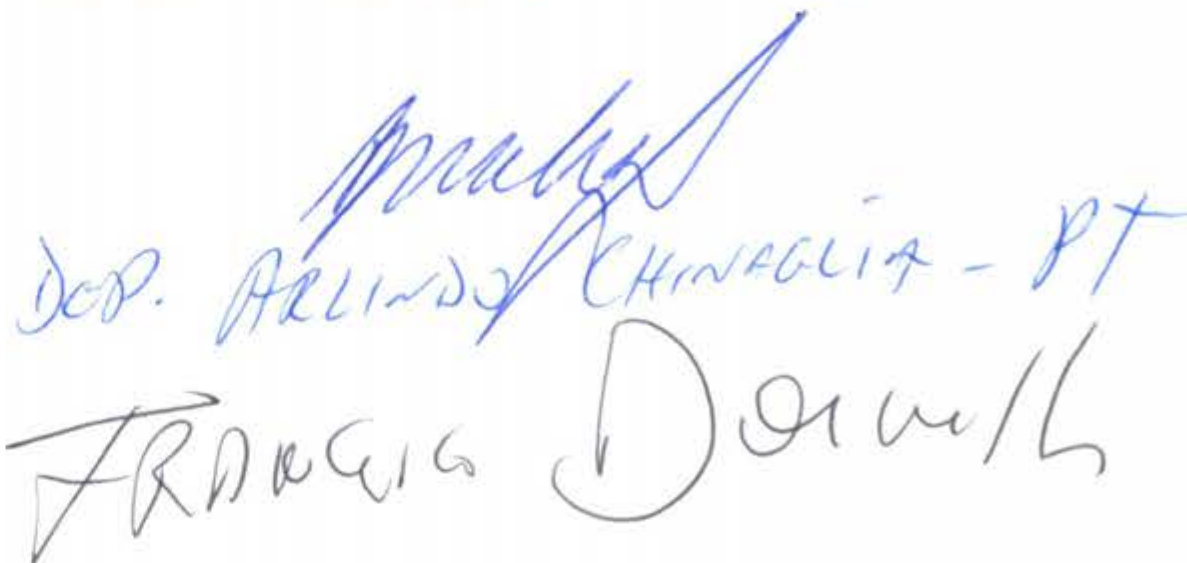 DEP. ARLINDO CHINAGLIA - PT
FRANCISCO Dornelles